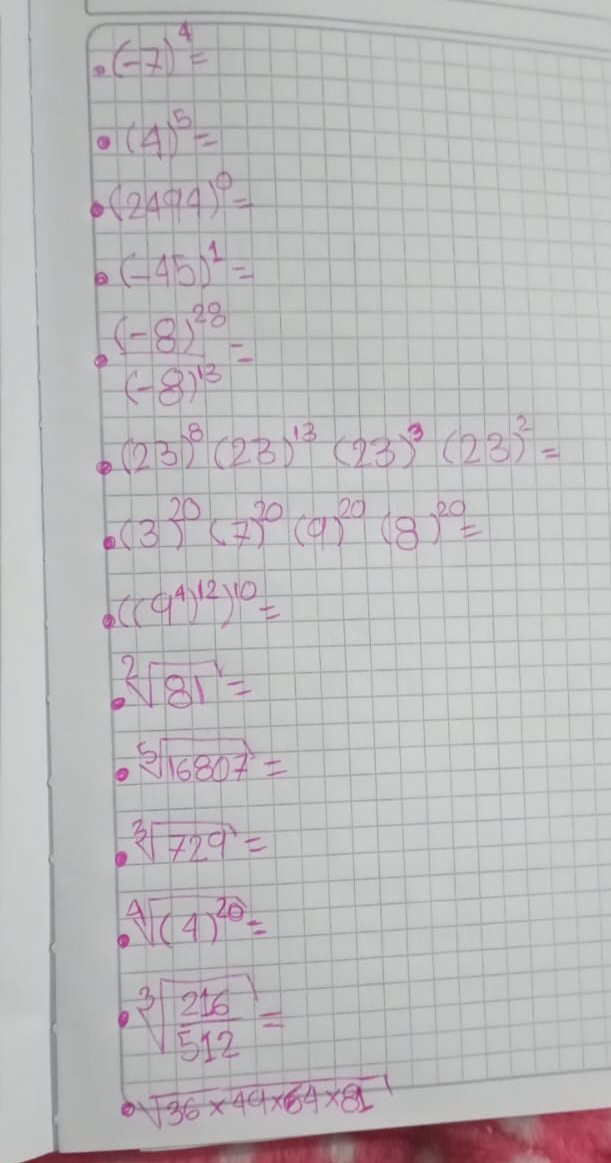 • (-7)⁴=
• (4)⁵=
• (2494)⁰=
• (-45)¹=
• (-8)²⁸/(-8)¹³ =
• (23)⁸ (23)¹³ (23)³ (23)²=
• (3)²⁰ (7)²⁰ (9)²⁰ (8)²⁰=
• ((9⁴)¹²)¹⁰=
• ²√81=
• ⁵√16807=
• ³√729=
• ⁴√(4)²⁰=
• ³√216/512=
• √36×49×64×81